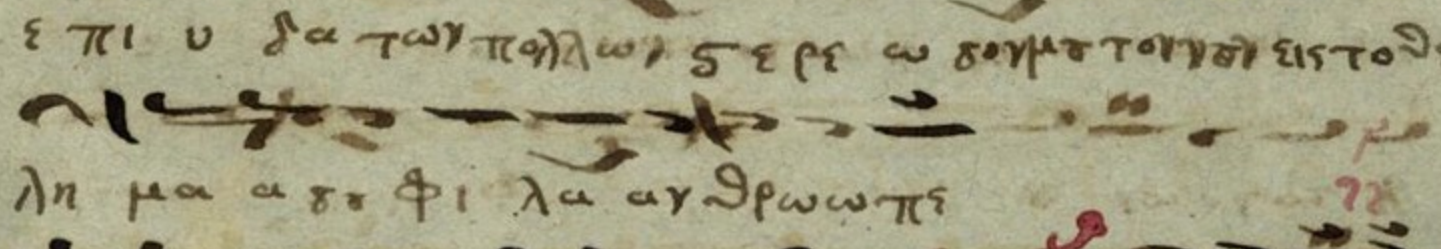 ε πι υ δα των πολλων ϛ ε ρε ω σονμȣ τοννȣν ειςτοθε
λη μα α σȣ φι λα αν θρωωπε